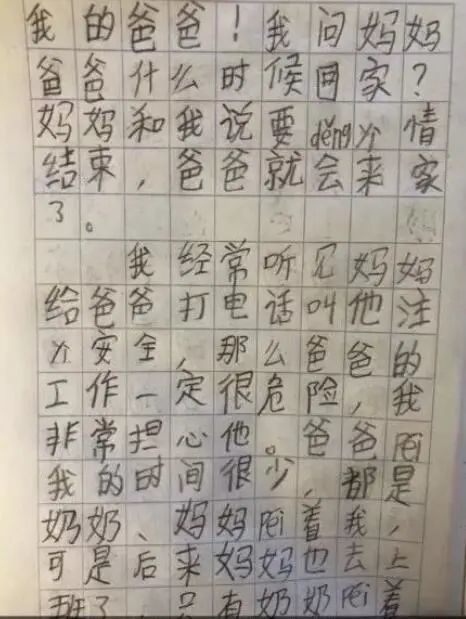 我的爸爸！我问妈妈
爸爸什么时候回家？
妈妈和我说要děngyì情
结束，爸爸就会来家
了。
我经常听见妈妈
给爸爸打电话叫他注
yì安全，那么爸爸的
工作一定很危险，我
非常担心他。爸爸péi
我的时间很少，都是
奶奶、妈妈péi着我，
可是后来妈妈也去上
班了，只有奶奶péi着